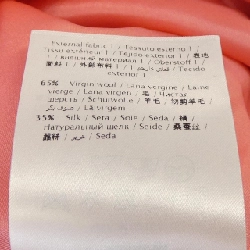 External fabric / Tessuto esterno /
Tissu extérieur / Tejido exterior / 表地
/ Oberstoff /
面料 / 外部布料 / / Tecido
exterior
65% Virgin wool / Lana vergine / Laine
vierge / Lana virgen / 毛 / Чистая
шерсть / Schurwolle / 羊毛 / 初剪羊毛
/ Lã virgem
35% Silk / Seta / Soie / Seda / 絹 /
Натуральный шелк / Seide / 桑蚕丝
/ 蠶絲 / / Seda